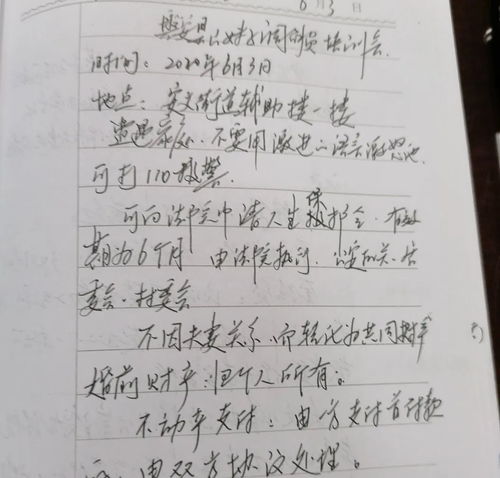 6月3日
磐安县婚姻调解员培训会
时间：2020年6月3日
地点：安文街道辅助楼一楼
遭遇家暴，不要用激进的语言激怒他
可打110报警.
可向法院申请人生保护令.有效
期为6个月 由法院执行.公安机关.居
委会.村委会
不因夫妻关系.而转化为共同财产
婚前财产:归个人所有。
不动产支付：由一方支付首付款
由双方协议处理。